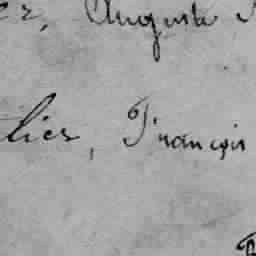 er, Auguste
lier, François